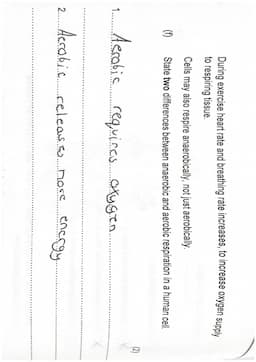 During exercise heart rate and breathing rate increases, to increase oxygen supply
to respiring tissue.
Cells may also respire anaerobically, not just aerobically.
(f) State two differences between anaerobic and aerobic respiration in a human cell.
1. Aerobic requires oxygen
2. Aerobic releases more energy
(2)